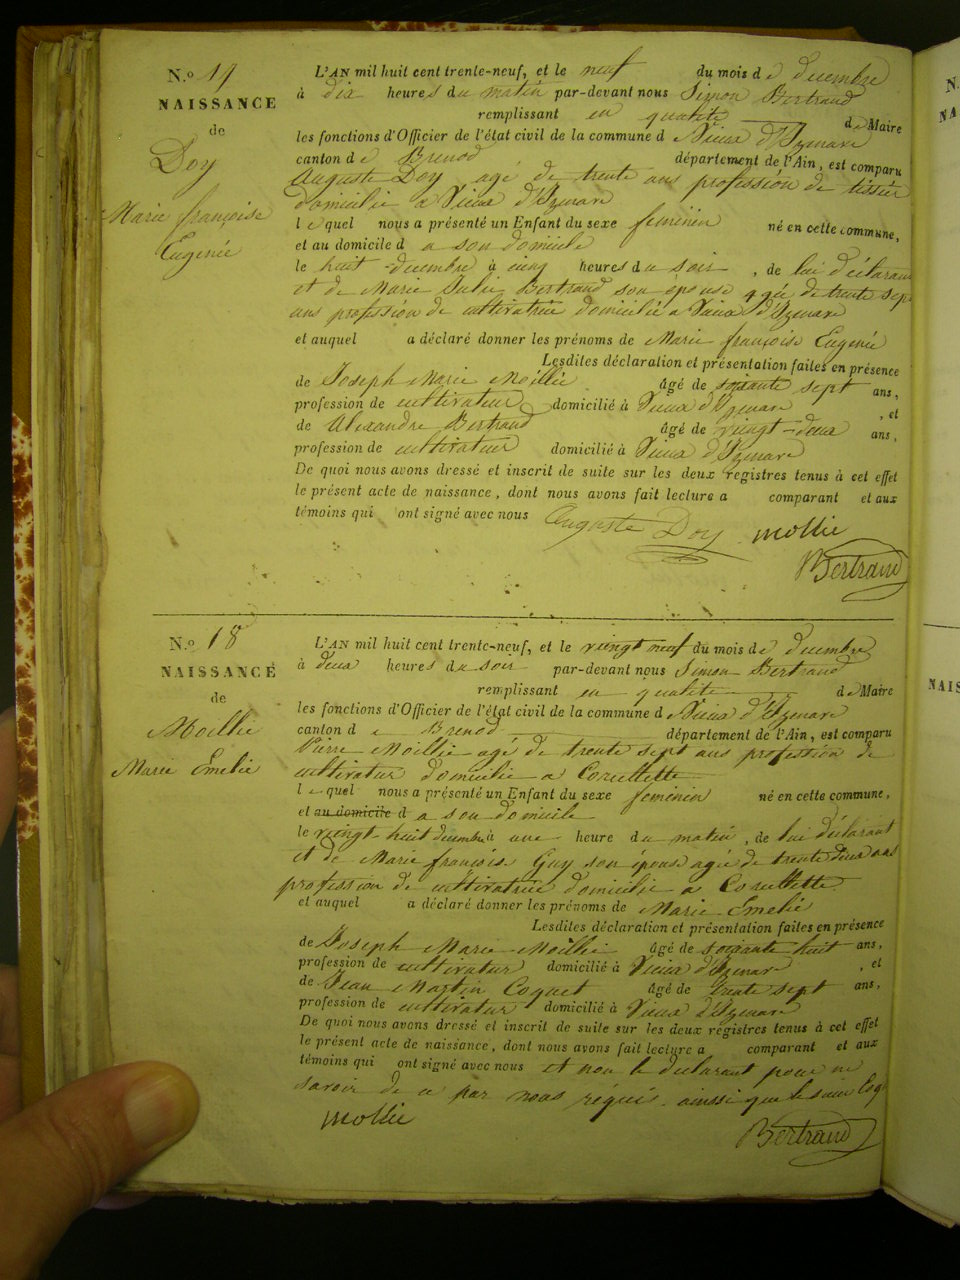 N.o 17
NAISSANCE
de
Doy
Marie françoise
Eugenie
L'AN mil huit cent trente-neuf, et le neuf du mois de decembre
à dix heures du matin par-devant nous Simon Bertrand
remplissant en qualité de Maire
les fonctions d'Officier de l'état civil de la commune d Vieux d'Izenave
canton de Brenod département de l'Ain, est comparu
Auguste Doy agé de trente ans profession de tissier
domicilié a Vieux d'Izenave
lequel nous a présenté un Enfant du sexe feminin né en cette commune,
et au domicile d a son domicile
le huit decembre à cinq heures du soir, de lui déclarant
et de Marie Julie Bertrand son épouse agée de trente sept
ans profession de cultivatrice domicilié a Vieux d'Izenave
et auquel a déclaré donner les prénoms de Marie françoise Eugenie
Lesdites déclaration et présentation faites en présence
de Joseph Marie Moillie âgé de soixante sept ans,
profession de cultivateur domicilié à Vieux d'Izenave, et
de Alexandre Bertrand âgé de vingt-deux ans,
profession de cultivateur domicilié à Vieux d'Izenave
De quoi nous avons dressé et inscrit de suite sur les deux registres tenus à cet effet
le présent acte de naissance, dont nous avons fait lecture a comparant et aux
témoins qui ont signé avec nous Auguste Doy mollie
Bertrand
N.o 18
NAISSANCE
de
Moillie
Marie Emelie
L'AN mil huit cent trente-neuf, et le vingt neuf du mois de decembre
à deux heures du soir par-devant nous Simon Bertrand
remplissant en qualité de Maire
les fonctions d'Officier de l'état civil de la commune d Vieux d'Izenave
canton de Brenod département de l'Ain, est comparu
Pierre Moillie agé de trente sept ans profession de
cultivateur domicilié a Corcellette
lequel nous a présenté un Enfant du sexe feminin né en cette commune,
et au domicile d a son domicile
le vingt huit decembre à une heure du matin, de lui déclarant
et de Marie françoise Guy son épouse agée de trente deux ans
profession de cultivatrice domicilié a Corcellette
et auquel a déclaré donner les prénoms de Marie Emelie
Lesdites déclaration et présentation faites en présence
de Joseph Marie Moillie âgé de soixante huit ans,
profession de cultivateur domicilié à Vieux d'Izenave, et
de Jean Martin Coquet âgé de trente sept ans,
profession de cultivateur domicilié à Vieux d'Izenave
De quoi nous avons dressé et inscrit de suite sur les deux registres tenus à cet effet
le présent acte de naissance, dont nous avons fait lecture a comparant et aux
témoins qui ont signé avec nous et non le declarant pour ne
savoir de ce par nous réquis. ainsi que le
mollie Bertrand